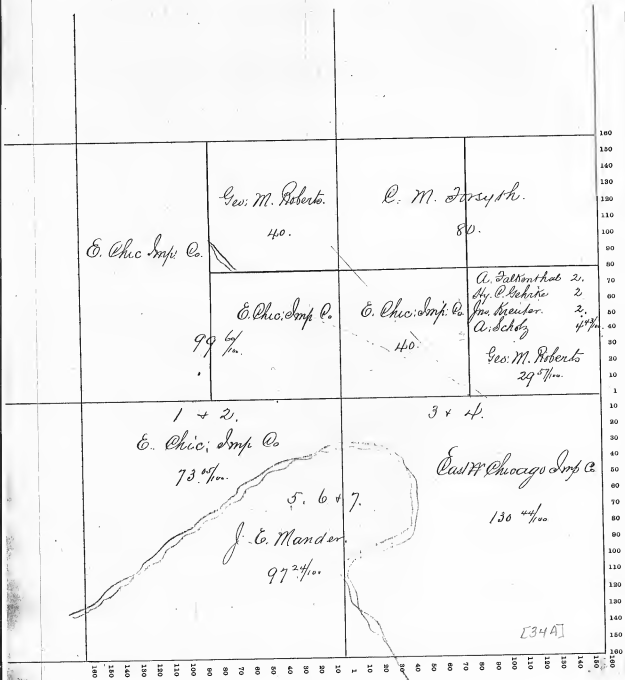 Geo; M. Roberts.
40.
C. M. Forsyth.
80.
E. Chic Imp. Co.
99 60/100.
E. Chic; Imp Co
E. Chic; Imp. Co
40.
A. Falkenthal 2.
Hy. C. Gehrke 2
Jno. Kreuter. 2.
A. Scholz 4 43/100
Geo: M. Roberts
29 57/100.
1 + 2.
E. Chic; Imp Co
73 05/100.
3 + 4.
East Chicago Imp Co
130 44/100
5. 6 + 7.
J. E. Mander.
97 24/100
[34A]
160
150
140
130
120
110
100
90
80
70
60
50
40
30
20
10
1
10
20
30
40
50
60
70
80
90
100
110
120
130
140
150
160
160 150 140 130 120 110 100 90 80 70 60 50 40 30 20 10 1 10 20 30 40 50 60 70 80 90 100 110 120 130 140 150 160